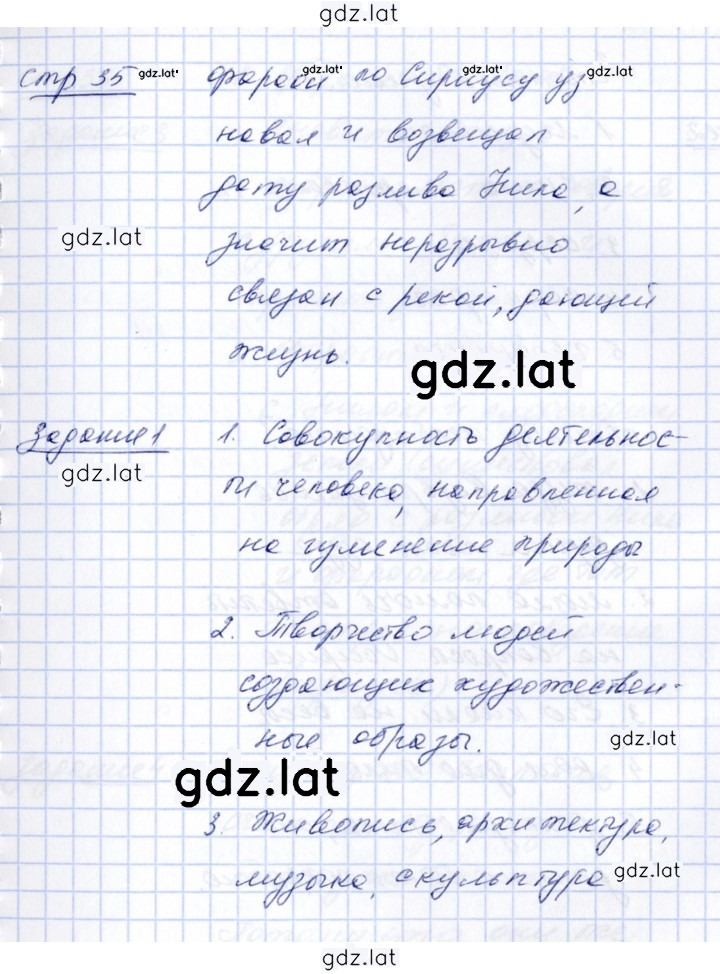 gdz.lat
стр 35 gdz.lat фараон gdz.lat по Сириусу gdz.lat уз gdz.lat
навал и возвещал
дату разлива Нила, а
gdz.lat
значит неразрывно
связан с рекой, дающей
жизнь.
gdz.lat
Задание 1 1. Совокупность деятельнос-
gdz.lat
ти человека, направленная
на изменение природы
2. Творчество людей
создающих художествен-
ные образы.
gdz.lat
gdz.lat
3. Живопись, архитектура,
музыка, скульптура
gdz.lat
gdz.lat